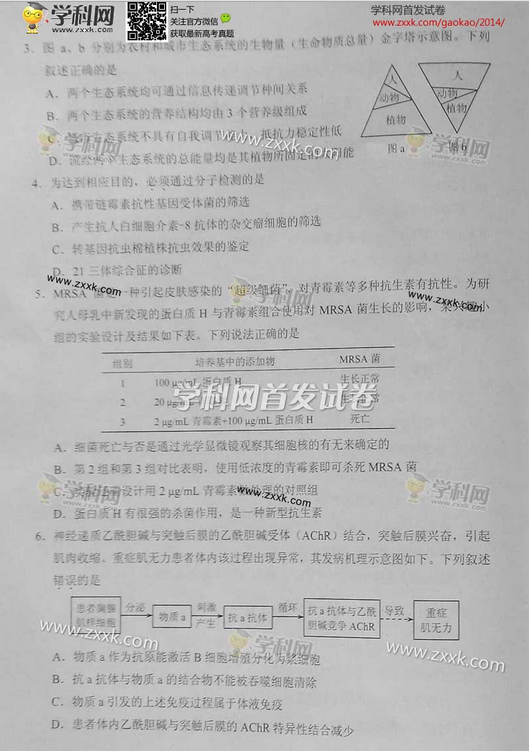 学科网
WWW.ZXXK.COM
扫一扫
关注官方微信
获取最新高考真题
学科网首发试卷
www.zxxk.com/gaokao/2014/
3. 图 a、b 分别为农村和城市生态系统的生物量（生命物质总量）金字塔示意图。下列
叙述正确的是
A. 两个生态系统均可通过信息传递调节种间关系
B. 两个生态系统的营养结构均由 3 个营养级组成
生态系统不具有自我调节 抵抗力稳定性低
D. 两个生态系统的总能量均是其植物所固定 能
人
动物
植物
图 a
人
动物
植物
图 b
4. 为达到相应目的，必须通过分子检测的是
A. 携带链霉素抗性基因受体菌的筛选
B. 产生抗人白细胞介素-8 抗体的杂交瘤细胞的筛选
C. 转基因抗虫棉植株抗虫效果的鉴定
D. 21 三体综合征的诊断
5. MRSA 种引起皮肤感染的“超级细菌”，对青霉素等多种抗生素有抗性。为研
究人母乳中新发现的蛋白质 H 与青霉素组合使用对 MRSA 菌生长的影响，某兴趣小
组的实验设计及结果如下表。下列说法正确的是
组别 培养基中的添加物 MRSA 菌
1 100 μg/mL 蛋白质 H 生长正常
2 20 μg/mL
3 2 μg/mL 青霉素+100 μg/mL 蛋白质 H 死亡
A. 细菌死亡与否是通过光学显微镜观察其细胞核的有无来确定的
B. 第 2 组和第 3 组对比表明，使用低浓度的青霉素即可杀死 MRSA 菌
C. 设计用 2 μg/mL 青霉素处理的对照组
D. 蛋白质 H 有很强的杀菌作用，是一种新型抗生素
6. 神经递质乙酰胆碱与突触后膜的乙酰胆碱受体（AChR）结合，突触后膜兴奋，引起
肌肉收缩。重症肌无力患者体内该过程出现异常，其发病机理示意图如下。下列叙述
错误的是
患者胸腺肌样细胞 分泌 物质 a 刺激产生 抗 a 抗体 循环 抗 a 抗体与乙酰胆碱竞争 AChR 导致 重症肌无力
A. 物质 a 作为抗原能激活 B 细胞增殖分化为浆细胞
B. 抗 a 抗体与物质 a 的结合物不能被吞噬细胞清除
C. 物质 a 引发的上述免疫过程属于体液免疫
D. 患者体内乙酰胆碱与突触后膜的 AChR 特异性结合减少